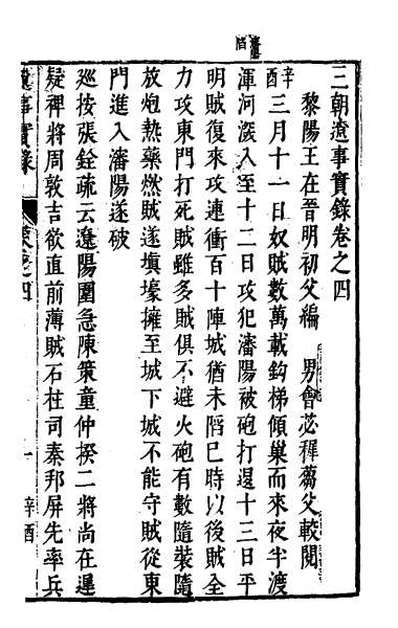 三朝遼事實錄卷之四
黎陽王在晉明初父編 男會苾穉薦父較閱
辛酉
三月十一日奴賊數萬載鈎梯傾巢而來夜半渡
渾河濺入至十二日攻犯瀋陽被砲打退十三日平
明賊復來攻連衝百十陣城猶未陷巳時以後賊全
力攻東門打死賊雖多賊俱不避火砲有數隨裝隨
放炮熱藥燃賊遂填壕擁至城下城不能守賊從東
門進入瀋陽遂破
廵按張銓疏云遼陽圍急陳策童仲揆二將尚在遲
疑裨將周敦吉欲直前薄賊石柱司秦邦屏先率兵
遼事實錄
卷之四
一
辛酉